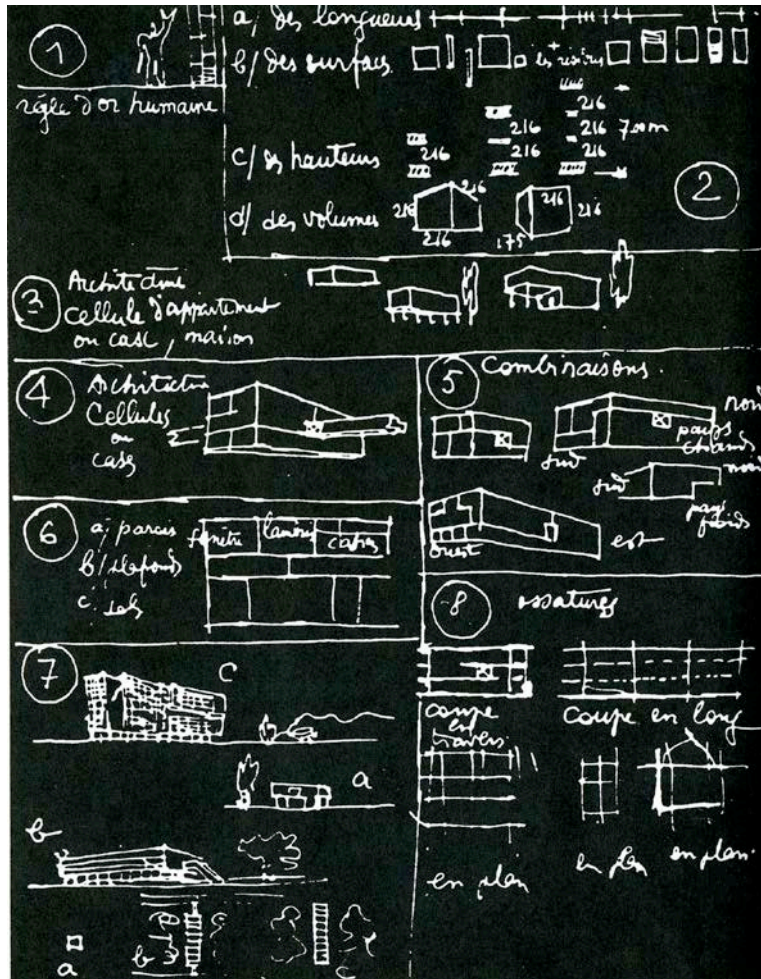 1
règle d'or humaine
a/ des longueurs
b/ des surfaces + les résidus
c/ des hauteurs
216
216
216
216
216
216
7.00m
d/ des volumes
216
216
216
175
216
216
2
3
Architecture
Cellule d'appartement
ou case, maison
4
Architecture
Cellules
ou
cases
5
Combinaisons.
nord
pays
chauds
sud
sud
nord
pays
froids
ouest
est
6
a/ parois
b/ plafonds
c. sols
fenêtre
lambris
casiers
7
c
a
b
a
b
c
8
ossatures
coupe
en
travers
coupe en long
en plan
en plan
en plan.